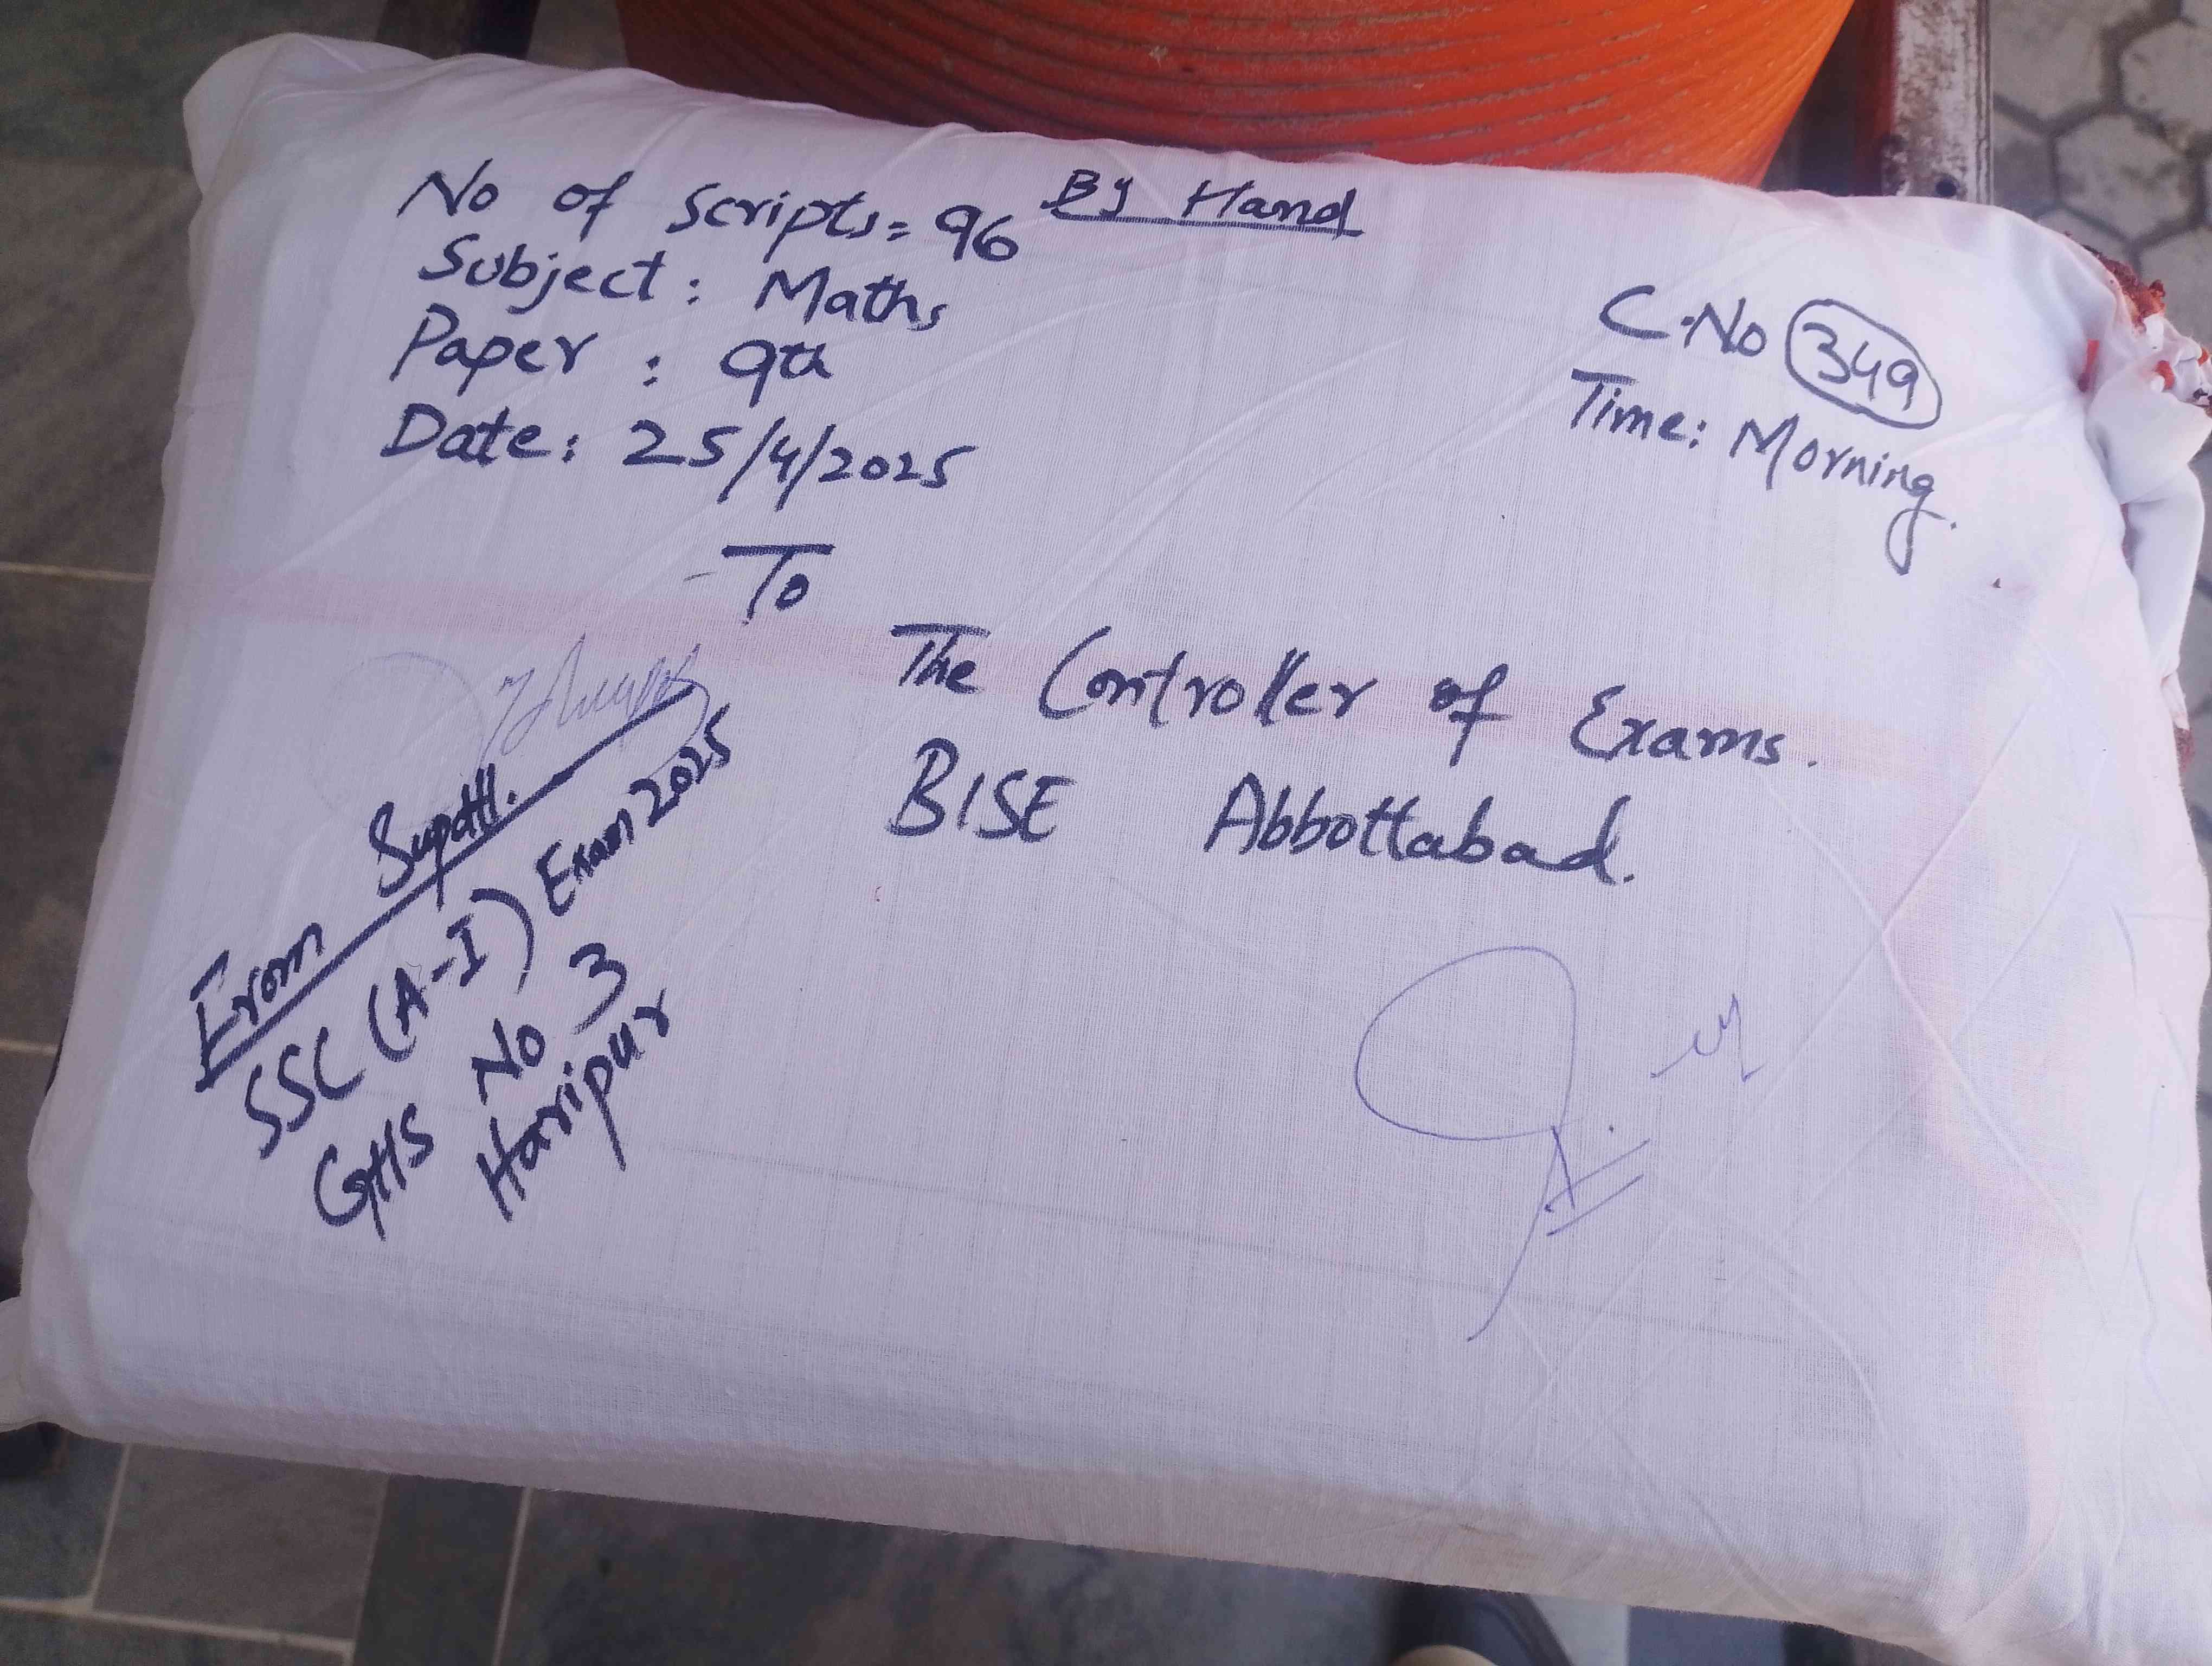 By Hand
No of scripts = 96
Subject : Maths
Paper : 9th
Date : 25/4/2025
C.No 349
Time: Morning.
To
The Controller of Exams.
BISE Abbottabad.
From Supdtt.
SSC (A-I) Exam 2025
GHS No 3
Haripur